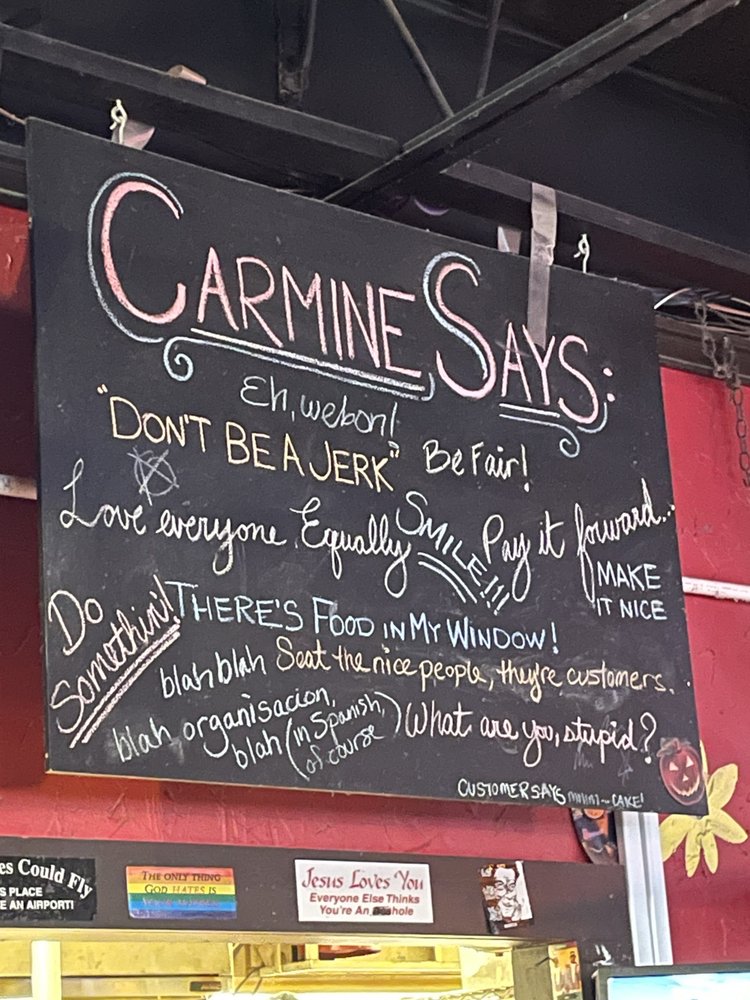 CARMINE SAYS:
Eh, webon!
"DON'T BE A JERK" Be Fair!
Love everyone Equally SMILE!!! Pay it forward...
MAKE
IT NICE
Do
Somethin'!
THERE'S FOOD IN MY WINDOW!
blah blah Seat the nice people, they're customers.
blah organisacion,
blah (in Spanish,
of course)
What are you, stupid?
CUSTOMER SAYS CAKE!
es Could Fly
S PLACE
E AN AIRPORT!
THE ONLY THING
GOD HATES IS
Jesus Loves You
Everyone Else Thinks
You're An hole